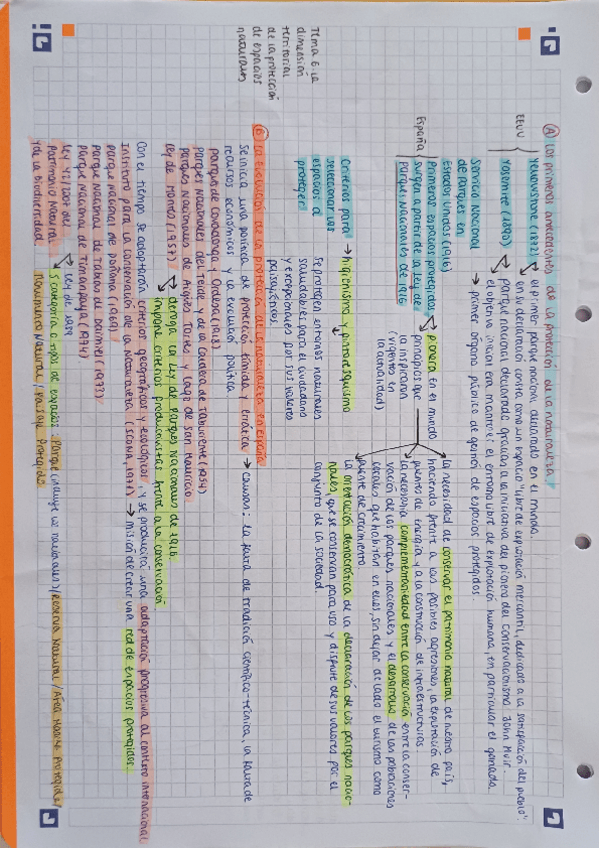 Tema 6: La
dimensión
territorial
de la protección
de espacios
naturales
A Los primeros antecedentes de la protección de la naturaleza
EEUU
Yellowstone (1872) → el primer parque nacional declarado en el mundo.
en su declaración consta como un espacio "libre de explotación mercantil, dedicado a la satisfacción del pueblo".
Yosemite (1890) → parque nacional declarado gracias a la iniciativa del pionero del conservacionismo John Muir.
el objetivo inicial era mantener el entorno libre de explotación humana, en particular el ganado.
Servicio Nacional
de parques en → primer órgano público de gestión de espacios protegidos.
Estados Unidos (1916)
España
Primeros espacios protegidos
surgen a partir de la Ley de
Parques Nacionales de 1916
→ pionera en el mundo
principios que
la inspiraron
(vigentes en
la actualidad)
la necesidad de conservar el patrimonio natural de nuestro país,
haciendo frente a las posibles agresiones, la explotación de
fuentes de energía y a la construcción de infraestructuras.
la necesaria complementariedad entre la conservación entre la conser-
vación de los parques nacionales y el desarrollo de las poblaciones
locales que habitan en ellos, sin dejar de lado el turismo como
fuente de crecimiento.
la orientación democrática de la declaración de los parques nacio-
nales, que se conservan para uso y disfrute de sus valores por el
conjunto de la sociedad
Criterios para
seleccionar los
espacios a
proteger
→ higienismo y pintoresquismo
Se protegen entornos naturales
saludables para el ciudadano
y excepcionales por sus valores
paisajísticos.
B La evolución de la protección de la naturaleza en España
Se inicia una política de protección tímida y errática → causas: la falta de tradición científico-técnica, la falta de
recursos económicos y la evolución política
Parques de Covadonga y Ordesa (1918)
Parques Nacionales del Teide y de la Caldera de Taburiente (1954)
Parques Nacionales de Aigües Tortes y Lago de San Mauricio
Ley de Montes (1957) → deroga la Ley de Parques Nacionales de 1916
impone criterios productivistas frente a la conservación
Con el tiempo se adoptarán criterios geográficos y ecológicos, y se producirá una adaptación progresiva al contexto internacional
Instituto para la Conservación de la Naturaleza (ICONA, 1971) → misión de crear una red de espacios protegidos.
Parque Nacional de Doñana (1969)
Parque Nacional de Tablas de Daimiel (1973)
Parque Nacional de Timanfaya (1974)
Ley 42/2007 del → Ley de 1989
Patrimonio Natural → 5 categorías o tipos de espacios: Parque (incluye los nacionales) / Reserva Natural / Área Marina Protegida /
y de la Biodiversidad
Monumento Natural / Paisaje Protegido